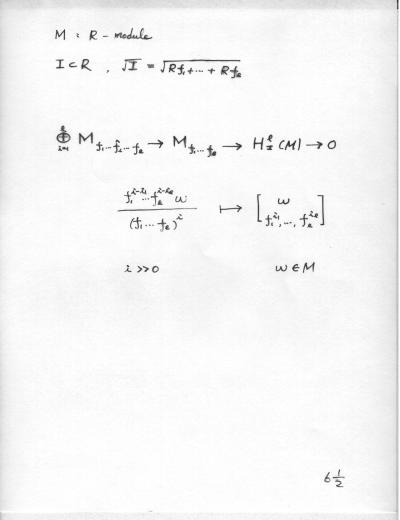 M : R - module
I ⊂ R , √I = √(Rf₁ + ⋯ + Rf_ℓ)
⊕_{i=1}^{ℓ} M_{f₁⋯f̂_i⋯f_ℓ} → M_{f₁⋯f_ℓ} → H_I^ℓ(M) → 0
f₁^{i-i₁}⋯f_ℓ^{i-i_ℓ} ω / (f₁⋯f_ℓ)^i ↦ [ω / f₁^{i₁}, ⋯, f_ℓ^{i_ℓ}]
i >> 0 ω ∈ M
6 1/2